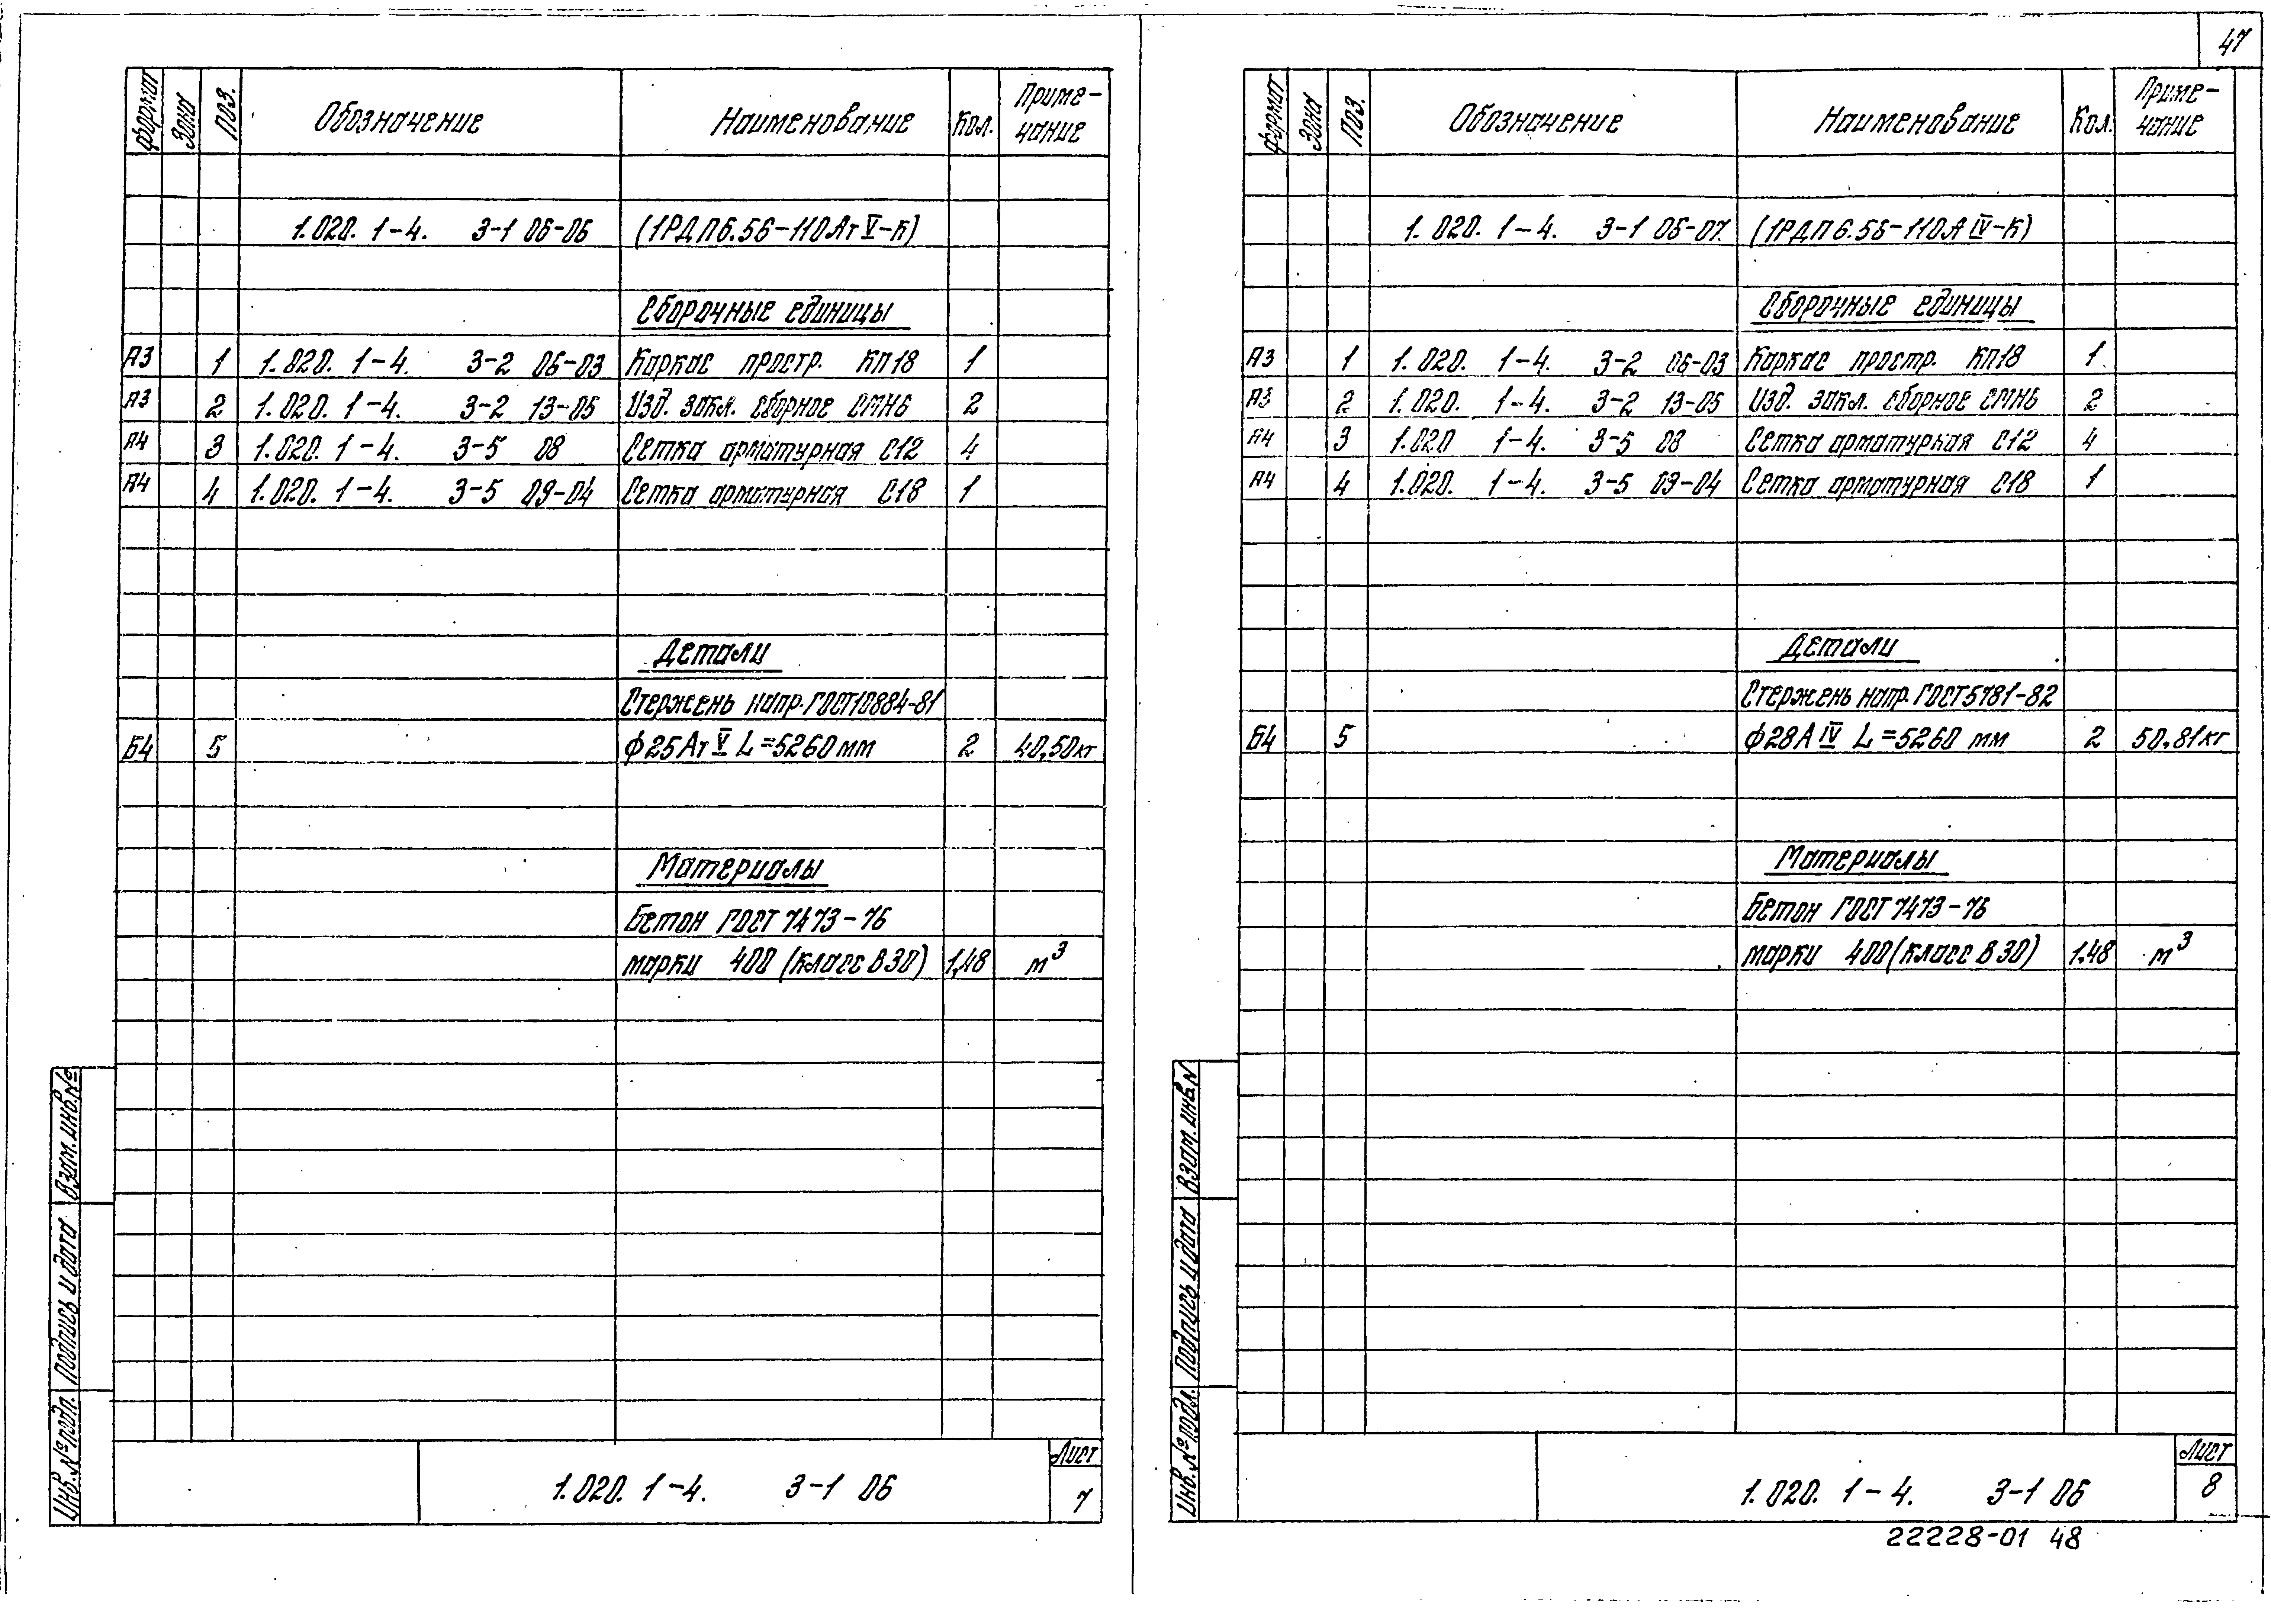 47
формат Зона Поз. Обозначение Наименование Кол. Приме-
чание
1.020. 1-4. 3-1 06-06 (1РДП6.56-110АтV-К)
Сборочные единицы
А3 1 1.020. 1-4. 3-2 06-03 Каркас простр. КП18 1
А3 2 1.020. 1-4. 3-2 13-05 Изд. закл. сборное СМН6 2
А4 3 1.020. 1-4. 3-5 08 Сетка арматурная С12 4
А4 4 1.020. 1-4. 3-5 09-04 Сетка арматурная С18 1
Детали
Стержень напр. ГОСТ10884-81
Б4 5 ф25АтV L=5260мм 2 40,50кг
Материалы
Бетон ГОСТ 7473-76
марки 400 (класс В30) 1,48 м³
Взам. инв. №
Подпись и дата
Инв. № подл.
1.020. 1-4. 3-1 06
Лист
7
формат Зона Поз. Обозначение Наименование Кол. Приме-
чание
1.020. 1-4. 3-1 06-07. (1РДП6.56-110АIV-К)
Сборочные единицы
А3 1 1.020. 1-4. 3-2 06-03 Каркас простр. КП18 1
А3 2 1.020. 1-4. 3-2 13-05 Изд. закл. сборное СМН6 2
А4 3 1.020 1-4. 3-5 08 Сетка арматурная С12 4
А4 4 1.020. 1-4. 3-5 09-04 Сетка арматурная С18 1
Детали
Стержень напр. ГОСТ5781-82
Б4 5 ф28АIV L=5260 мм 2 50,81кг
Материалы
Бетон ГОСТ 7473-76
марки 400 (класс В30) 1.48 м³
Взам. инв. N
Подпись и дата
Инв. № подл.
1.020. 1-4. 3-1 06
Лист
8
22228-01 48